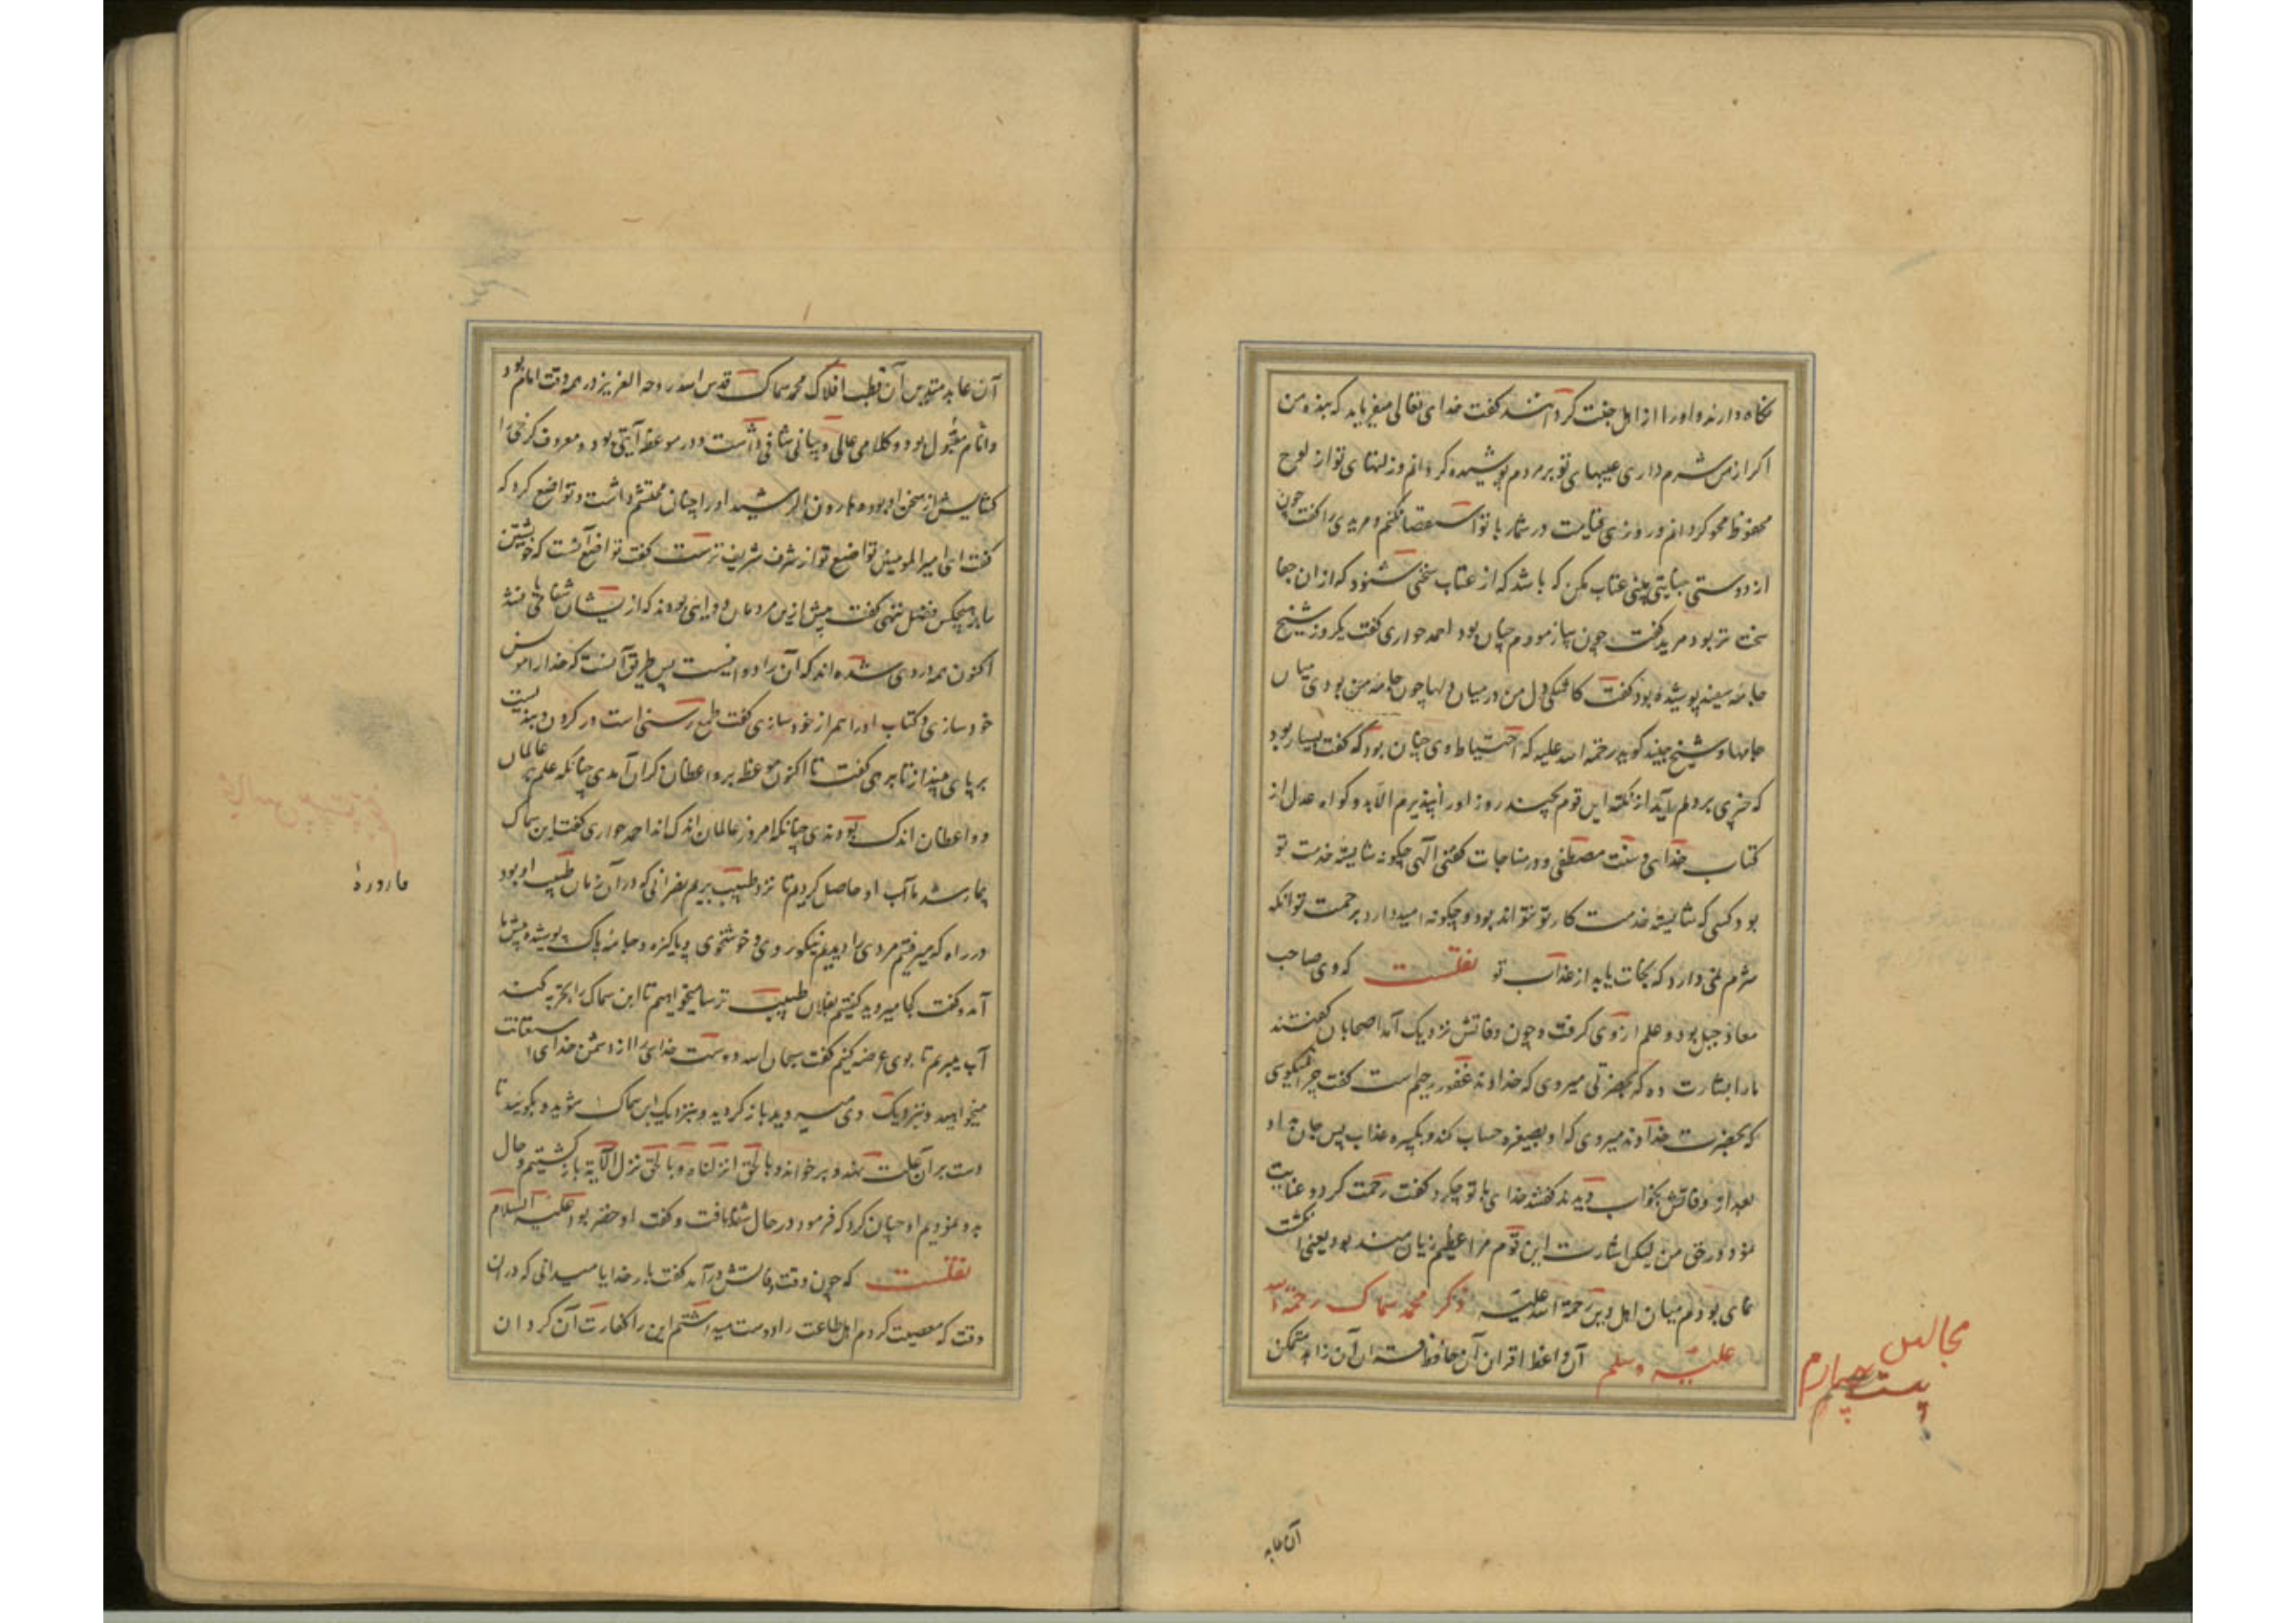 نگاه دارند و او را از اهل جنت گردانند گفت خدای تعالی میفرماید که بنده من
اگر از من شرم داری عیبهای تو بر مردم پوشیده گردانم و زلتهای تو از لوح
محفوظ محو گردانم و روز قیامت در شمار با تو استقصا نکنم و مریدی را گفت چون
از دوستی جنایتی بینی عتاب مکن که باشد که از عتاب سخنی شنوی که از آن جفا
سخت تر بود مرید گفت چون بیازمودم چنان بود احمد حواری گفت یکروز شیخ
جامه سفید پوشیده بود گفت کاشکی دل من در میان دلها چون جامه من بودی میان
جامها و شیخ جنید گوید رحمة الله علیه که احتیاط وی چنان بود که گفت بسیار بود
که چیزی بر دلم آید از نکته این قوم بچند روز او را نپذیرم الا بدو گواه عدل از
کتاب خدای و سنت مصطفی و در مناجات گفتی الهی چگونه شایسته خدمت تو
بود کسی که شایسته خدمت کار تو نتواند بود و چگونه امید دارد برحمت تو آنکه
شرم نمی دارد که نجات یابد از عذاب تو نقلست که وی صاحب
معاذ جبل بود و علم از وی گرفت و چون وفاتش نزدیک آمد اصحابان گفتند
ما را بشارت ده که بحضرتی میروی که خداوند غفور رحیم است گفت چرا نمیگویی
که بحضرت خداوند میروی که او بصغیره حساب کند و بکبیره عذاب پس جان داد
بعد از وفاتش بخواب دیدند گفتند خدای با تو چکرد گفت رحمت کرد و عنایت
نمود در حق من لیکن اشارت این قوم مرا عظیم زیان مند بود یعنی انگشت
نمای بودم میان اهل دین رحمة الله علیه ذکر محمد سماک رحمة الله
علیه وسلم آن واعظ اقران آن حافظ آن زاهد متمکن
مجالس
بیست چهارم
آن عابد
آن عابد متدین آن قطب افلاک محمد سماک قدس الله روحه العزیز در همه وقت امام بود
و انام مقبول بود و کلامی عالی و بیانی شافی داشت و در موعظه آیتی بود و معروف کرخی را
گشایش از سخن او بود هارون الرشید او را چنان محتشم داشت و تواضع کرد که
گفت ای امیر المومنین تواضع تو از شرف شریف ترست گفت تواضع آنست که خویشتن
را بر هیچکس فضل ننهی گفت پیش ازین مردمان دوایی بودند که از یشان شفا می یافتند
اکنون همه دردی شده اند که آن را دوا نیست پس طریق آنست که خدا را مونس
خود سازی و کتاب او را همراز خود سازی گفت طمع رسنی است در گردن و بندیست
بر پای بینداز تا برهی گفت تا اکنون موعظه بر واعظان گران آمدی چنانکه علم بر عالمان
و واعظان اندک بودندی چنانکه امروز عالمان اندک اند احمد حواری گفت ابن سماک
بیمار شد ما آب او حاصل کردیم تا نزد طبیب بریم نصرانی که در آن زمان طبیب او بود
در راه که میرفتیم مردی را دیدیم نیکوروی و خوشخوی و پاکیزه و جامه پاک پوشیده پیش ما
آمد و گفت کجا میروید گفتیم بفلان طبیب ترسا میخواهیم تا ابن سماک را تجربه کند
آب میبریم تا بوی عرضه کنیم گفت سبحان الله دوست خدای را از دشمن خدای استعانت
میخواهید و بنزدیک وی میروید باز گردید و بنزدیک ابن سماک شوید و بگویید تا
دست بر آن علت نهد و بر خواند و بالحق انزلناه و بالحق نزل الآیة باز گشتیم و حال
بدو نمودیم او چنان کرد که فرمود در حال شفا یافت و گفت او خضر بود علیه السلام
نقلست که چون وقت وفاتش در آمد گفت بار خدایا میدانی که در آن
وقت که معصیت کردم اهل طاعت را دوست میداشتم این را کفارت آن گردان